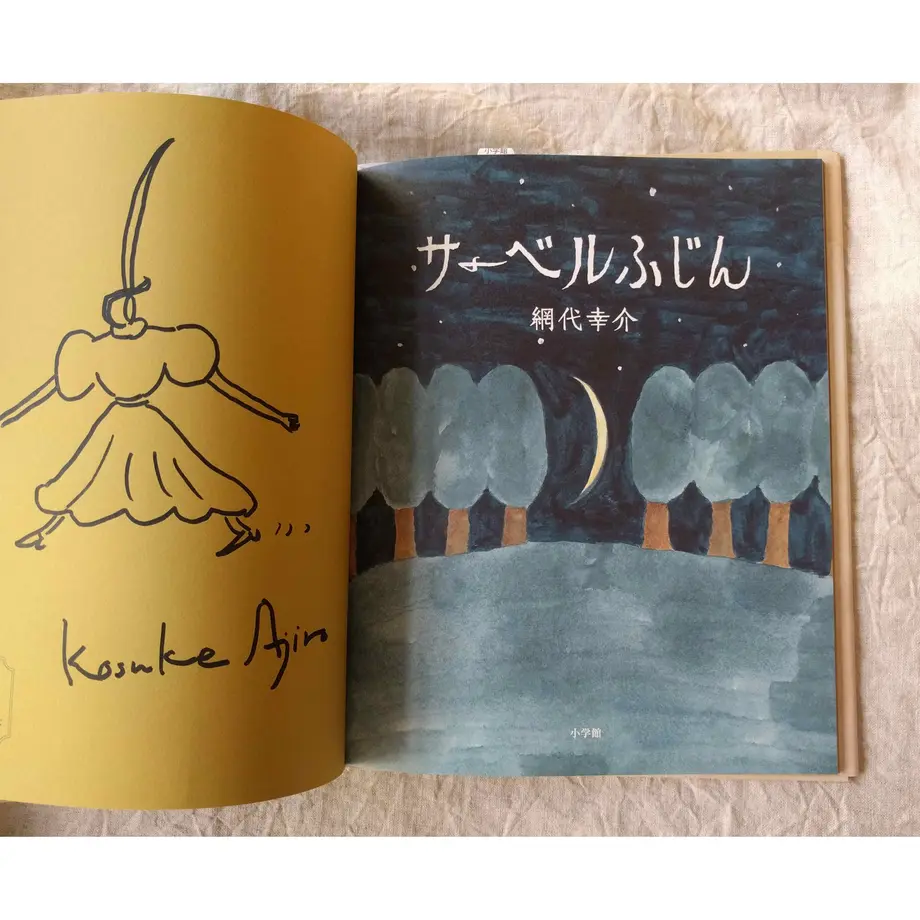 Kosuke Ajiro
小学館
サーベルふじん
網代幸介
小学館